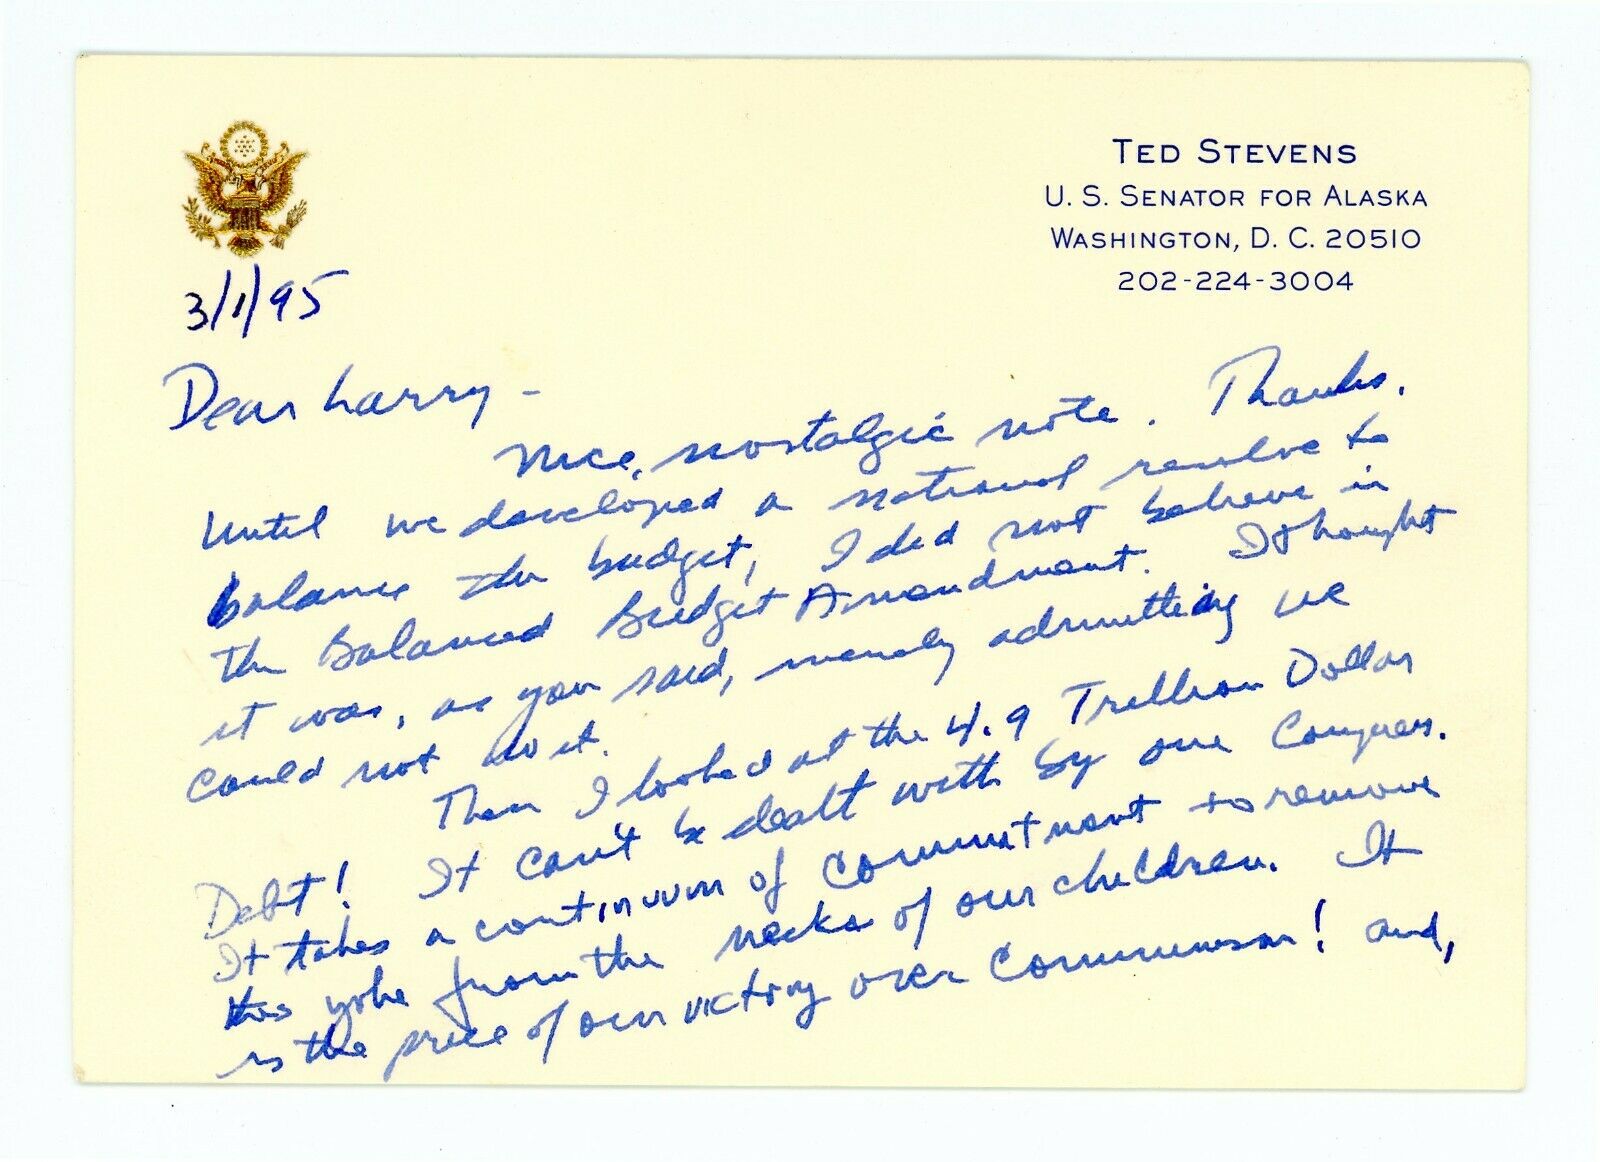 TED STEVENS
U. S. SENATOR FOR ALASKA
WASHINGTON, D. C. 20510
202-224-3004
3/1/95
Dear Larry -
Nice, nostalgic note. Thanks.
Until we developed a national resolve to
balance the budget, I did not believe in
the Balanced Budget Amendment. I thought
it was, as you said, merely admitting we
could not do it.
Then I looked at the 4.9 Trillion Dollar
Debt! It can't be dealt with by one Congress.
It takes a continuum of commitment to remove
this yoke from the necks of our children. It
is the price of our victory over Communism! and,